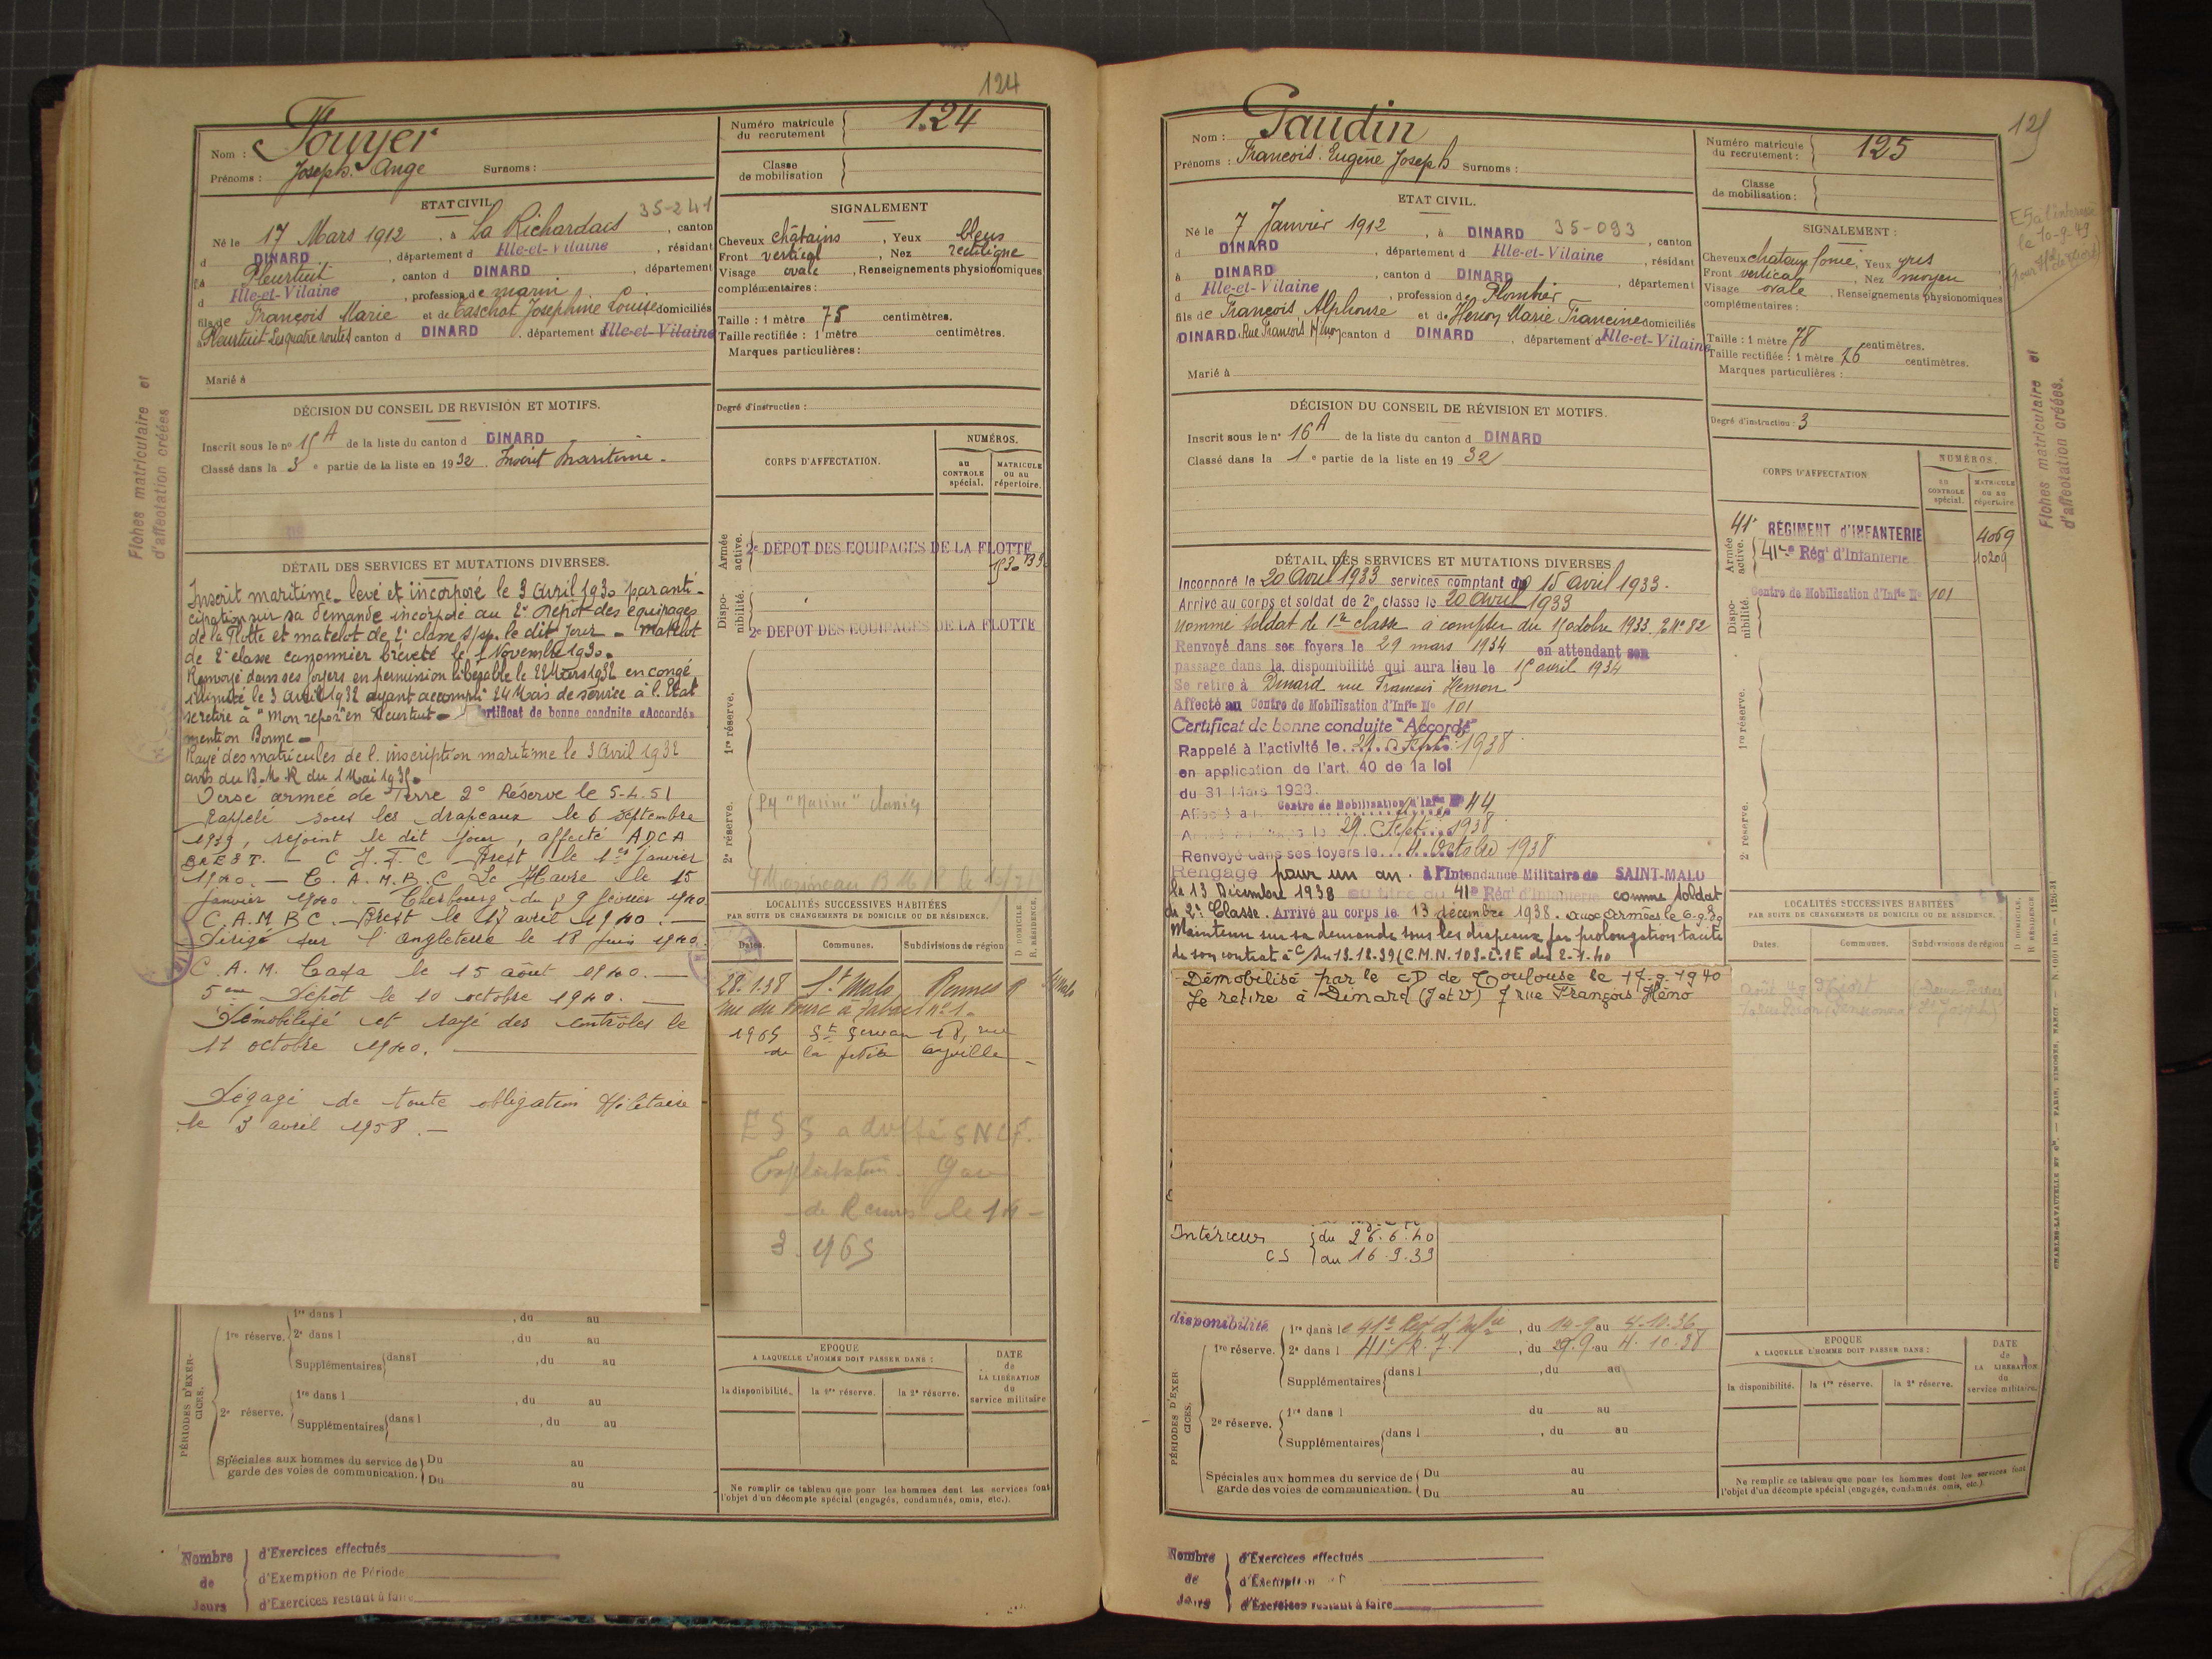 124
Nom : Fouyer
Prénoms : Joseph Ange Surnoms :
Numéro matricule du recrutement 124
Classe de mobilisation
ETAT CIVIL
35-241
Né le 17 Mars 1912, à La Richardais, canton
d DINARD, département d Ille-et-Vilaine, résidant
à Pleurtuit, canton d DINARD, département
d Ille-et-Vilaine, profession de marin
fils de François Marie et de Caschot Joséphine Louise domiciliés
à Pleurtuit Les quatre routes canton d DINARD, département d Ille-et-Vilaine
Marié à
SIGNALEMENT
Cheveux châtains, Yeux bleus
Front vertical, Nez rectiligne
Visage ovale, Renseignements physionomiques
complémentaires :
Taille : 1 mètre 75 centimètres.
Taille rectifiée : 1 mètre centimètres.
Marques particulières :
Degré d'instruction :
DÉCISION DU CONSEIL DE REVISION ET MOTIFS.
Inscrit sous le n° 15 A de la liste du canton d DINARD
Classé dans la 3e partie de la liste en 1932. Inscrit Maritime.
Fiches matriculaire et
d'affectation créées
CORPS D'AFFECTATION.
NUMÉROS.
au CONTROLE spécial.
MATRICULE ou au répertoire.
Armée active.
2e DÉPOT DES EQUIPAGES DE LA FLOTTE
Disponibilité.
2e DEPOT DES EQUIPAGES DE LA FLOTTE
1re réserve.
2e réserve.
DÉTAIL DES SERVICES ET MUTATIONS DIVERSES.
Inscrit maritime levé et incorporé le 3 avril 1930 par anti-
cipation sur sa demande incorporé au 2e Dépôt des équipages
de la Flotte et matelot de 2e classe s/sp. le dit jour - Matelot
de 2e classe canonnier breveté le 1 Novembre 1930.
Renvoyé dans ses foyers en permission libérable le 22 Mars 1932 en congé
illimité le 3 avril 1932 ayant accompli 24 Mois de service à l'Etat
se retire à "Mon repos" en Pleurtuit - Certificat de bonne conduite «Accordé»
mention Bonne -
Rayé des matricules de l'inscription maritime le 3 Avril 1932
avis du B.M.R du 1 Mai 1935.
Versé armée de Terre 2e Réserve le 5-4-51
Rappelé sous les drapeaux le 6 septembre
1939, rejoint le dit jour, affecté ADCA
BREST. - C.J.F.C Brest le 1er janvier
1940. - C.A.M.B.C Le Havre le 15
janvier 1940. - Cherbourg du 29 février 1940
C.A.M.B.C. - Brest le 17 avril 1940. -
Dirigé sur l'angleterre le 18 juin 1940.
C.A.M. Casa le 15 août 1940. -
5ème Dépôt le 10 octobre 1940. -
Démobilisé et rayé des contrôles le
11 octobre 1940. -
Dégagé de toute obligation Militaire
le 3 avril 1958. -
LOCALITÉS SUCCESSIVES HABITÉES
PAR SUITE DE CHANGEMENTS DE DOMICILE OU DE RÉSIDENCE.
D. DOMICILE R. RÉSIDENCE.
Dates. Communes. Subdivisions de région
28.1.38 St Malo Rennes R
1965 St Servan 18, rue
de la petite
ESS adulté SNCF.
Exploitation Gare
de Rennes le 14-
3.1965
PÉRIODES D'EXERCICES.
1re réserve. 1re dans l , du au
2e dans l , du au
Supplémentaires dans l , du au
2e réserve. 1re dans l , du au
Supplémentaires dans l , du au
Spéciales aux hommes du service de garde des voies de communication. Du au
Du au
EPOQUE
A LAQUELLE L'HOMME DOIT PASSER DANS :
la disponibilité. la 1re réserve. la 2e réserve.
DATE de LA LIBÉRATION du service militaire
Ne remplir ce tableau que pour les hommes dont les services font
l'objet d'un décompte spécial (engagés, condamnés, omis, etc.).
Nombre de Jours
d'Exercices effectués
d'Exemption de Période
d'Exercices restant à faire
125
Nom : Gaudin
Prénoms : François Eugène Joseph Surnoms :
Numéro matricule du recrutement : 125
Classe de mobilisation :
ETAT CIVIL.
Né le 7 Janvier 1912, à DINARD 35-093, canton
d DINARD, département d Ille-et-Vilaine, résidant
à DINARD, canton d DINARD, département
d Ille-et-Vilaine, profession de Plombier
fils de François Alphonse et de Hemon Marie Francine domiciliés
à DINARD, Rue François Hemon canton d DINARD, département d Ille-et-Vilaine
Marié à
SIGNALEMENT :
Cheveux chatain foncé, Yeux gris
Front vertical, Nez moyen
Visage ovale, Renseignements physionomiques
complémentaires :
Taille : 1 mètre 78 centimètres.
Taille rectifiée : 1 mètre 76 centimètres.
Marques particulières :
Degré d'instruction : 3
le 10-9-49
DÉCISION DU CONSEIL DE RÉVISION ET MOTIFS.
Inscrit sous le n° 16 A de la liste du canton d DINARD
Classé dans la 1e partie de la liste en 1932
Fiches matriculaire et
d'affectation créées.
CORPS D'AFFECTATION
NUMÉROS.
au CONTROLE spécial.
MATRICULE ou au répertoire.
Armée active.
41e RÉGIMENT d'INFANTERIE 4069
41e Régt d'Infanterie 10209
Disponibilité.
Centre de Mobilisation d'Infie N° 101
1re réserve.
2e réserve.
DÉTAIL DES SERVICES ET MUTATIONS DIVERSES.
Incorporé le 20 avril 1933 services comptant du 15 avril 1933.
Arrivé au corps et soldat de 2e classe le 20 avril 1933
nommé soldat de 1re classe à compter du 15 octobre 1933
Renvoyé dans ses foyers le 29 mars 1934 en attendant son
passage dans la disponibilité qui aura lieu le 15 avril 1934
Se retire à Dinard rue François Hemon
Affecté au Centre de Mobilisation d'Infie N° 101
Certificat de bonne conduite "Accordé"
Rappelé à l'activité le 29 Sept. 1938
en application de l'art. 40 de la loi
du 31 Mars 1928.
Affecté au Centre de Mobilisation d'Infie N° 44
29 Sept. 1938
Renvoyé dans ses foyers le 4 octobre 1938
Rengagé pour un an à l'Intendance Militaire de SAINT-MALO
le 13 Décembre 1938 au titre du 41e Régt d'Infanterie comme soldat
de 2e Classe. Arrivé au corps le 13 décembre 1938. aux armées le 6-9-39
Maintenu sur sa demande sous les drapeaux par prolongation tacite
de son contrat à C/ du 13.12.39 (C.M.N. 103-C.1E du 2-1-40
Démobilisé par le CD de Toulouse le 17-9-1940
Se retire à Dinard (I et V) 7 rue François Héno
Intérieur du 26.6.40
CS au 16.9.39
LOCALITÉS SUCCESSIVES HABITÉES
PAR SUITE DE CHANGEMENTS DE DOMICILE OU DE RÉSIDENCE.
D DOMICILE. R RÉSIDENCE
Dates. Communes. Subdivisions de région
Août 49 Niort
PÉRIODES D'EXERCICES.
disponibilité
1re réserve. 1re dans le 41e Regt d'Infie, du 14-9 au 4-10-36
2e dans l 41e R.I, du 29.9 au 4.10.38
Supplémentaires dans l , du au
2e réserve. 1re dans l du au
Supplémentaires dans l , du au
Spéciales aux hommes du service de garde des voies de communication. Du au
Du au
EPOQUE
A LAQUELLE L'HOMME DOIT PASSER DANS :
la disponibilité. la 1re réserve. la 2e réserve.
DATE de LA LIBÉRATION du service militaire.
Ne remplir ce tableau que pour les hommes dont les services font
l'objet d'un décompte spécial (engagés, condamnés, omis, etc.)
Nombre de Jours
d'Exercices effectués
d'Exercices restant à faire